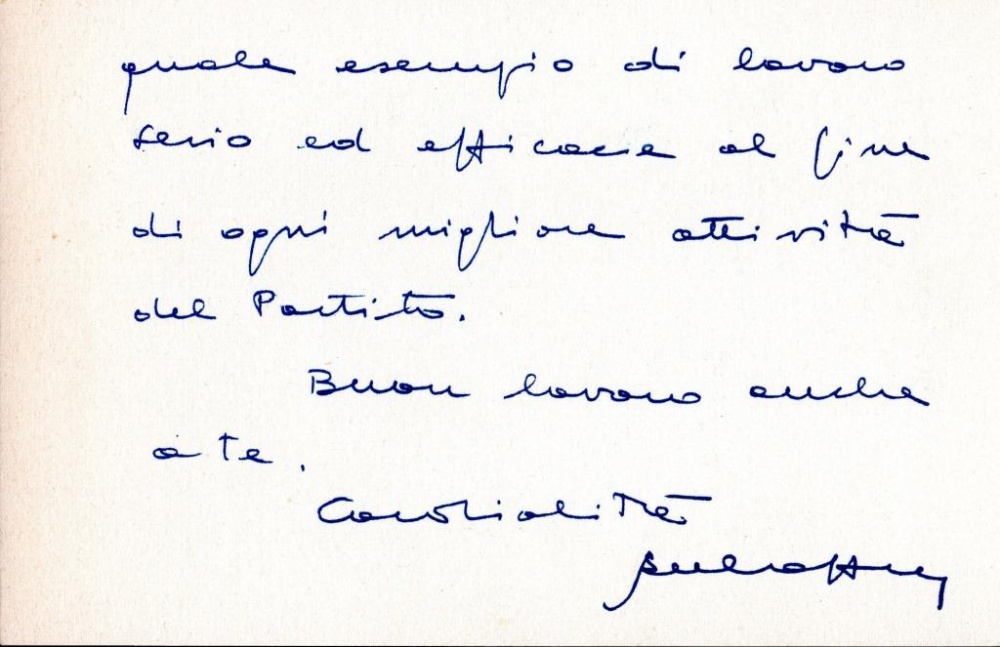 quale esempio di lavoro
serio ed efficace al fine
di ogni migliore attività
del Partito.
Buon lavoro anche
a te.
Cordialità